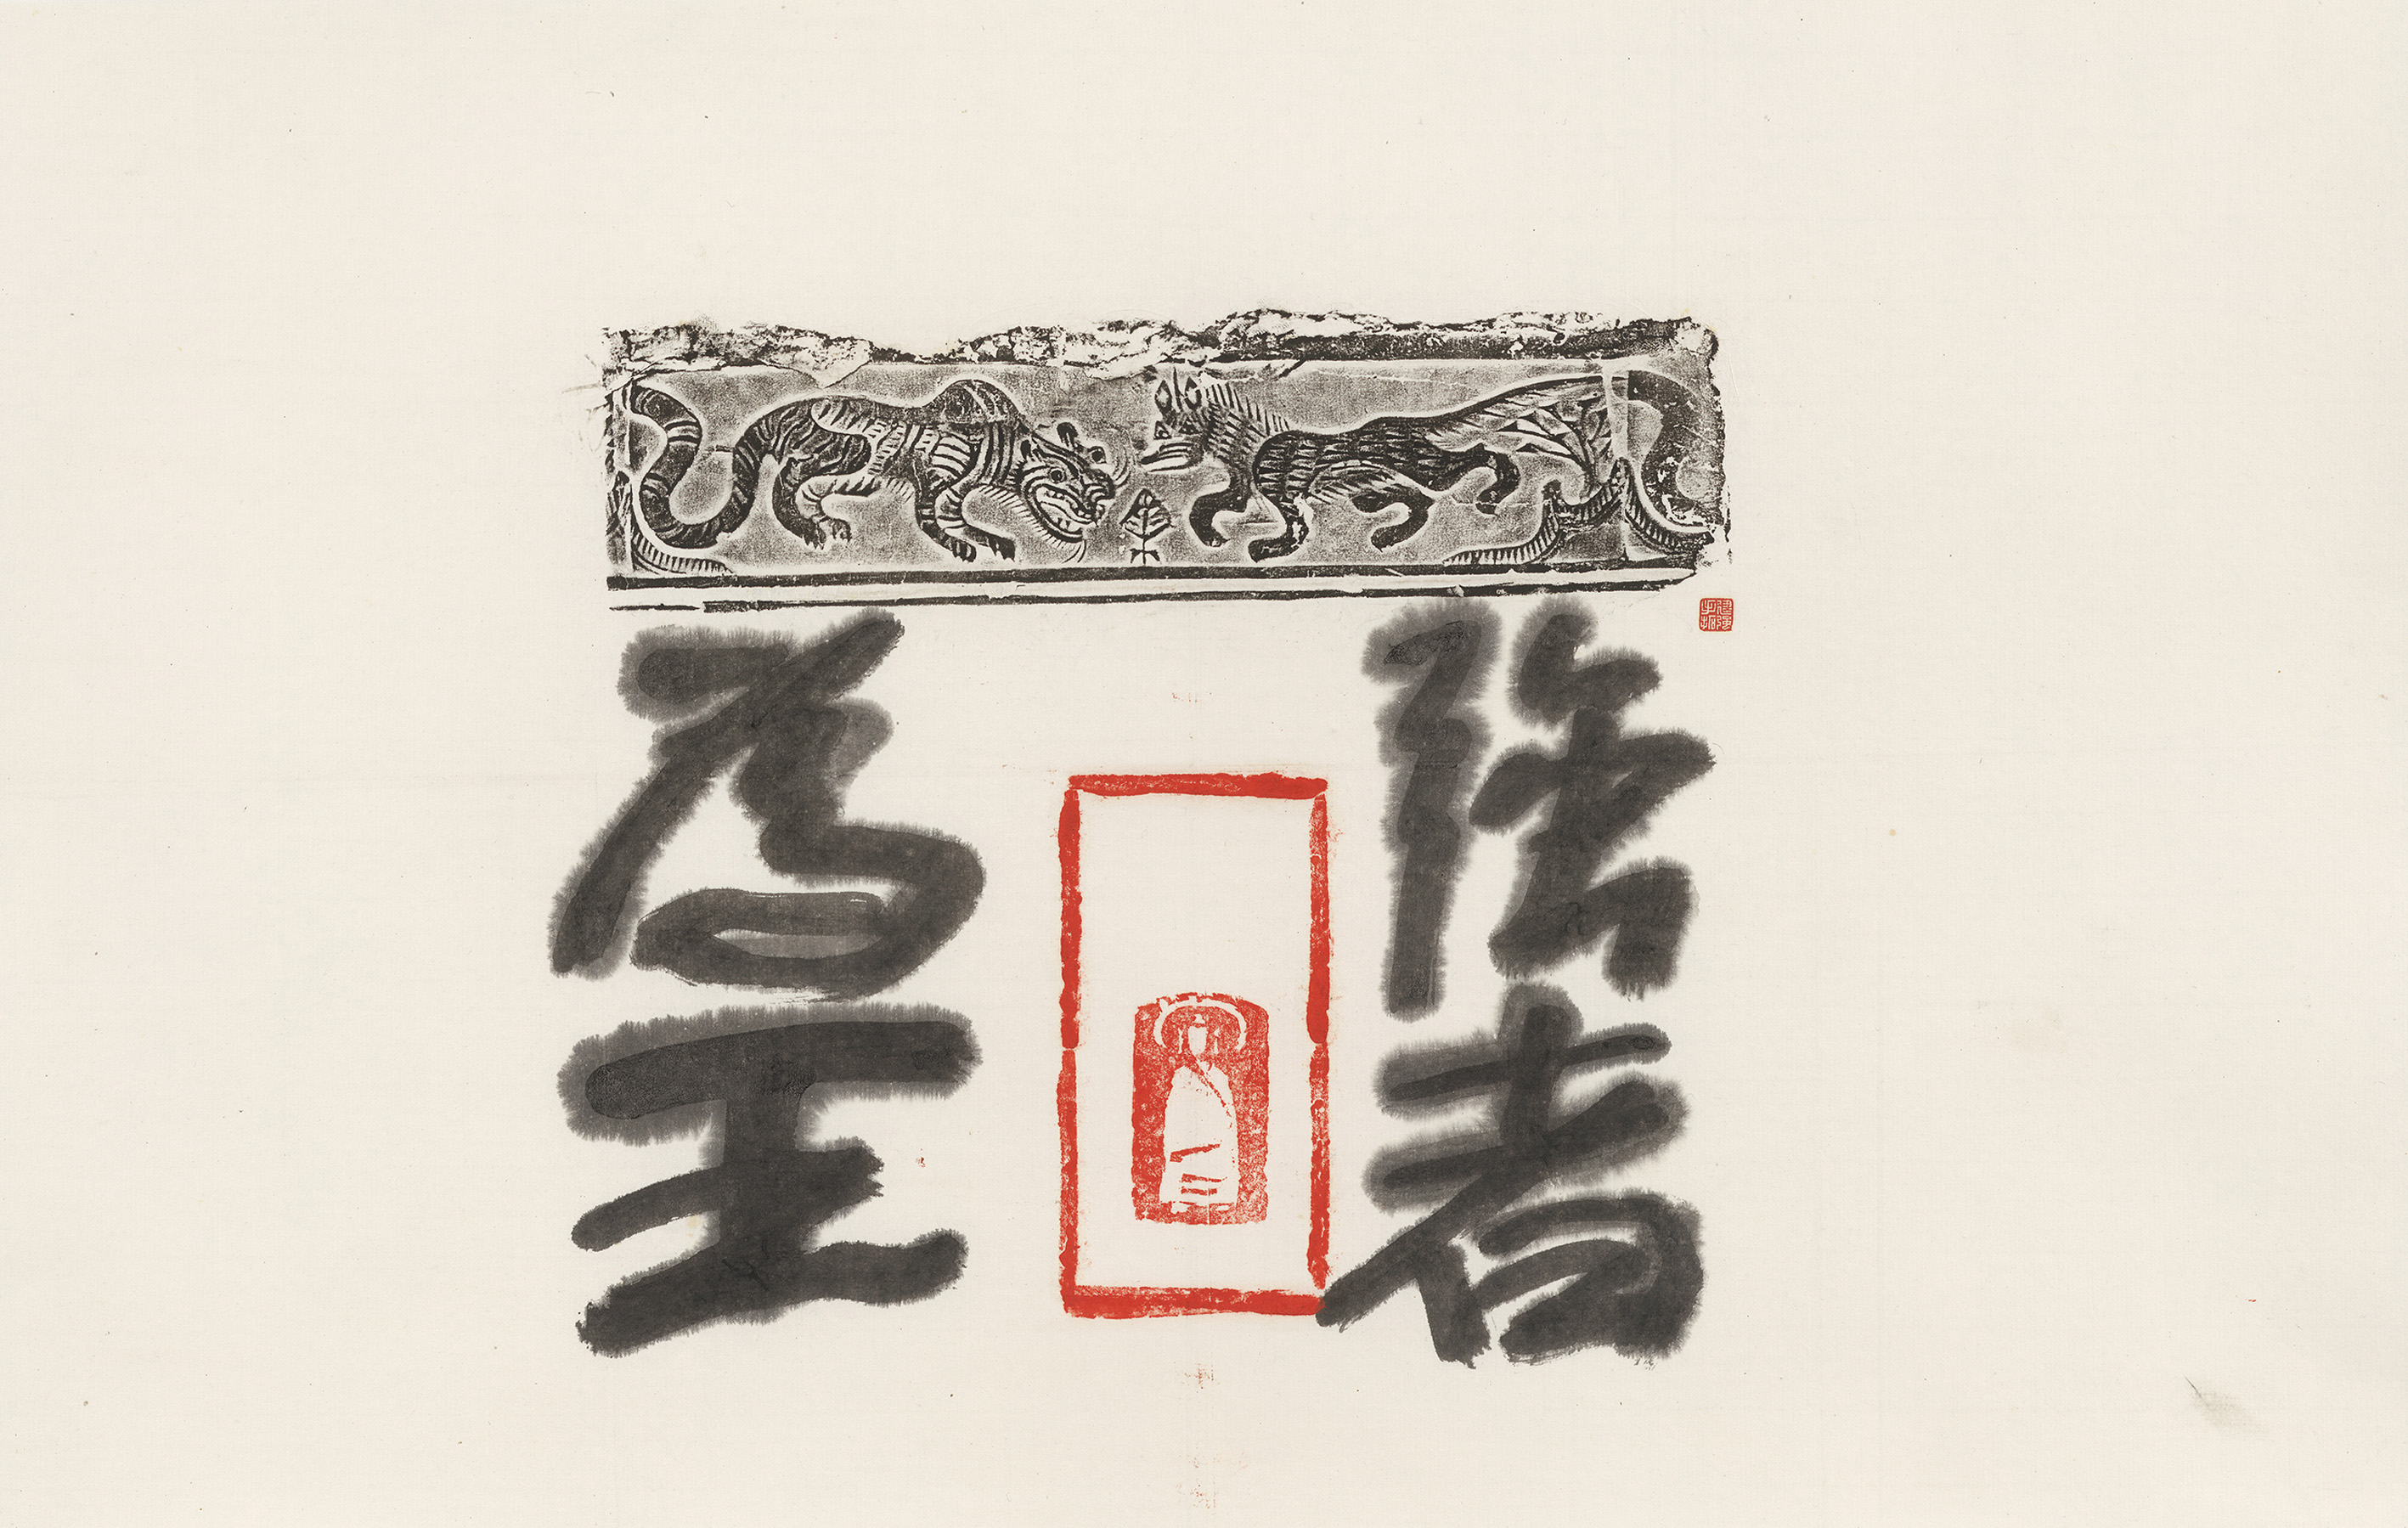 強者
為王